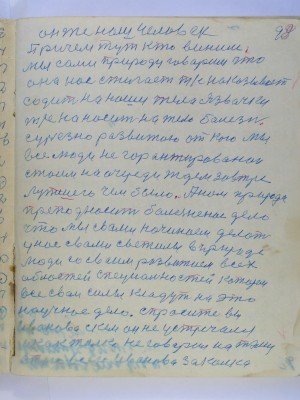 он же наш человек 98
Причем тут кто виние.
Мы сами природу говорим что
она нас сжигает т/е наказывает
содит на наши тела язвочки
т/е наносит на тело болезн.
сурьезно развитою от кого мы
все люди не горантированаи
стоим на очереди ждем завтре
лутшего чем было. А нам природа
преподносит болезненое дело
что мы с вами начинаем делат
у нас с вами светилы в природе
люди со всем развитием всех
областей специалностей которы
все сваи силы кладут на это
научное дело. спросите вы
Иванова с кем он не устречался
не говорил на тему
Иванова закалка